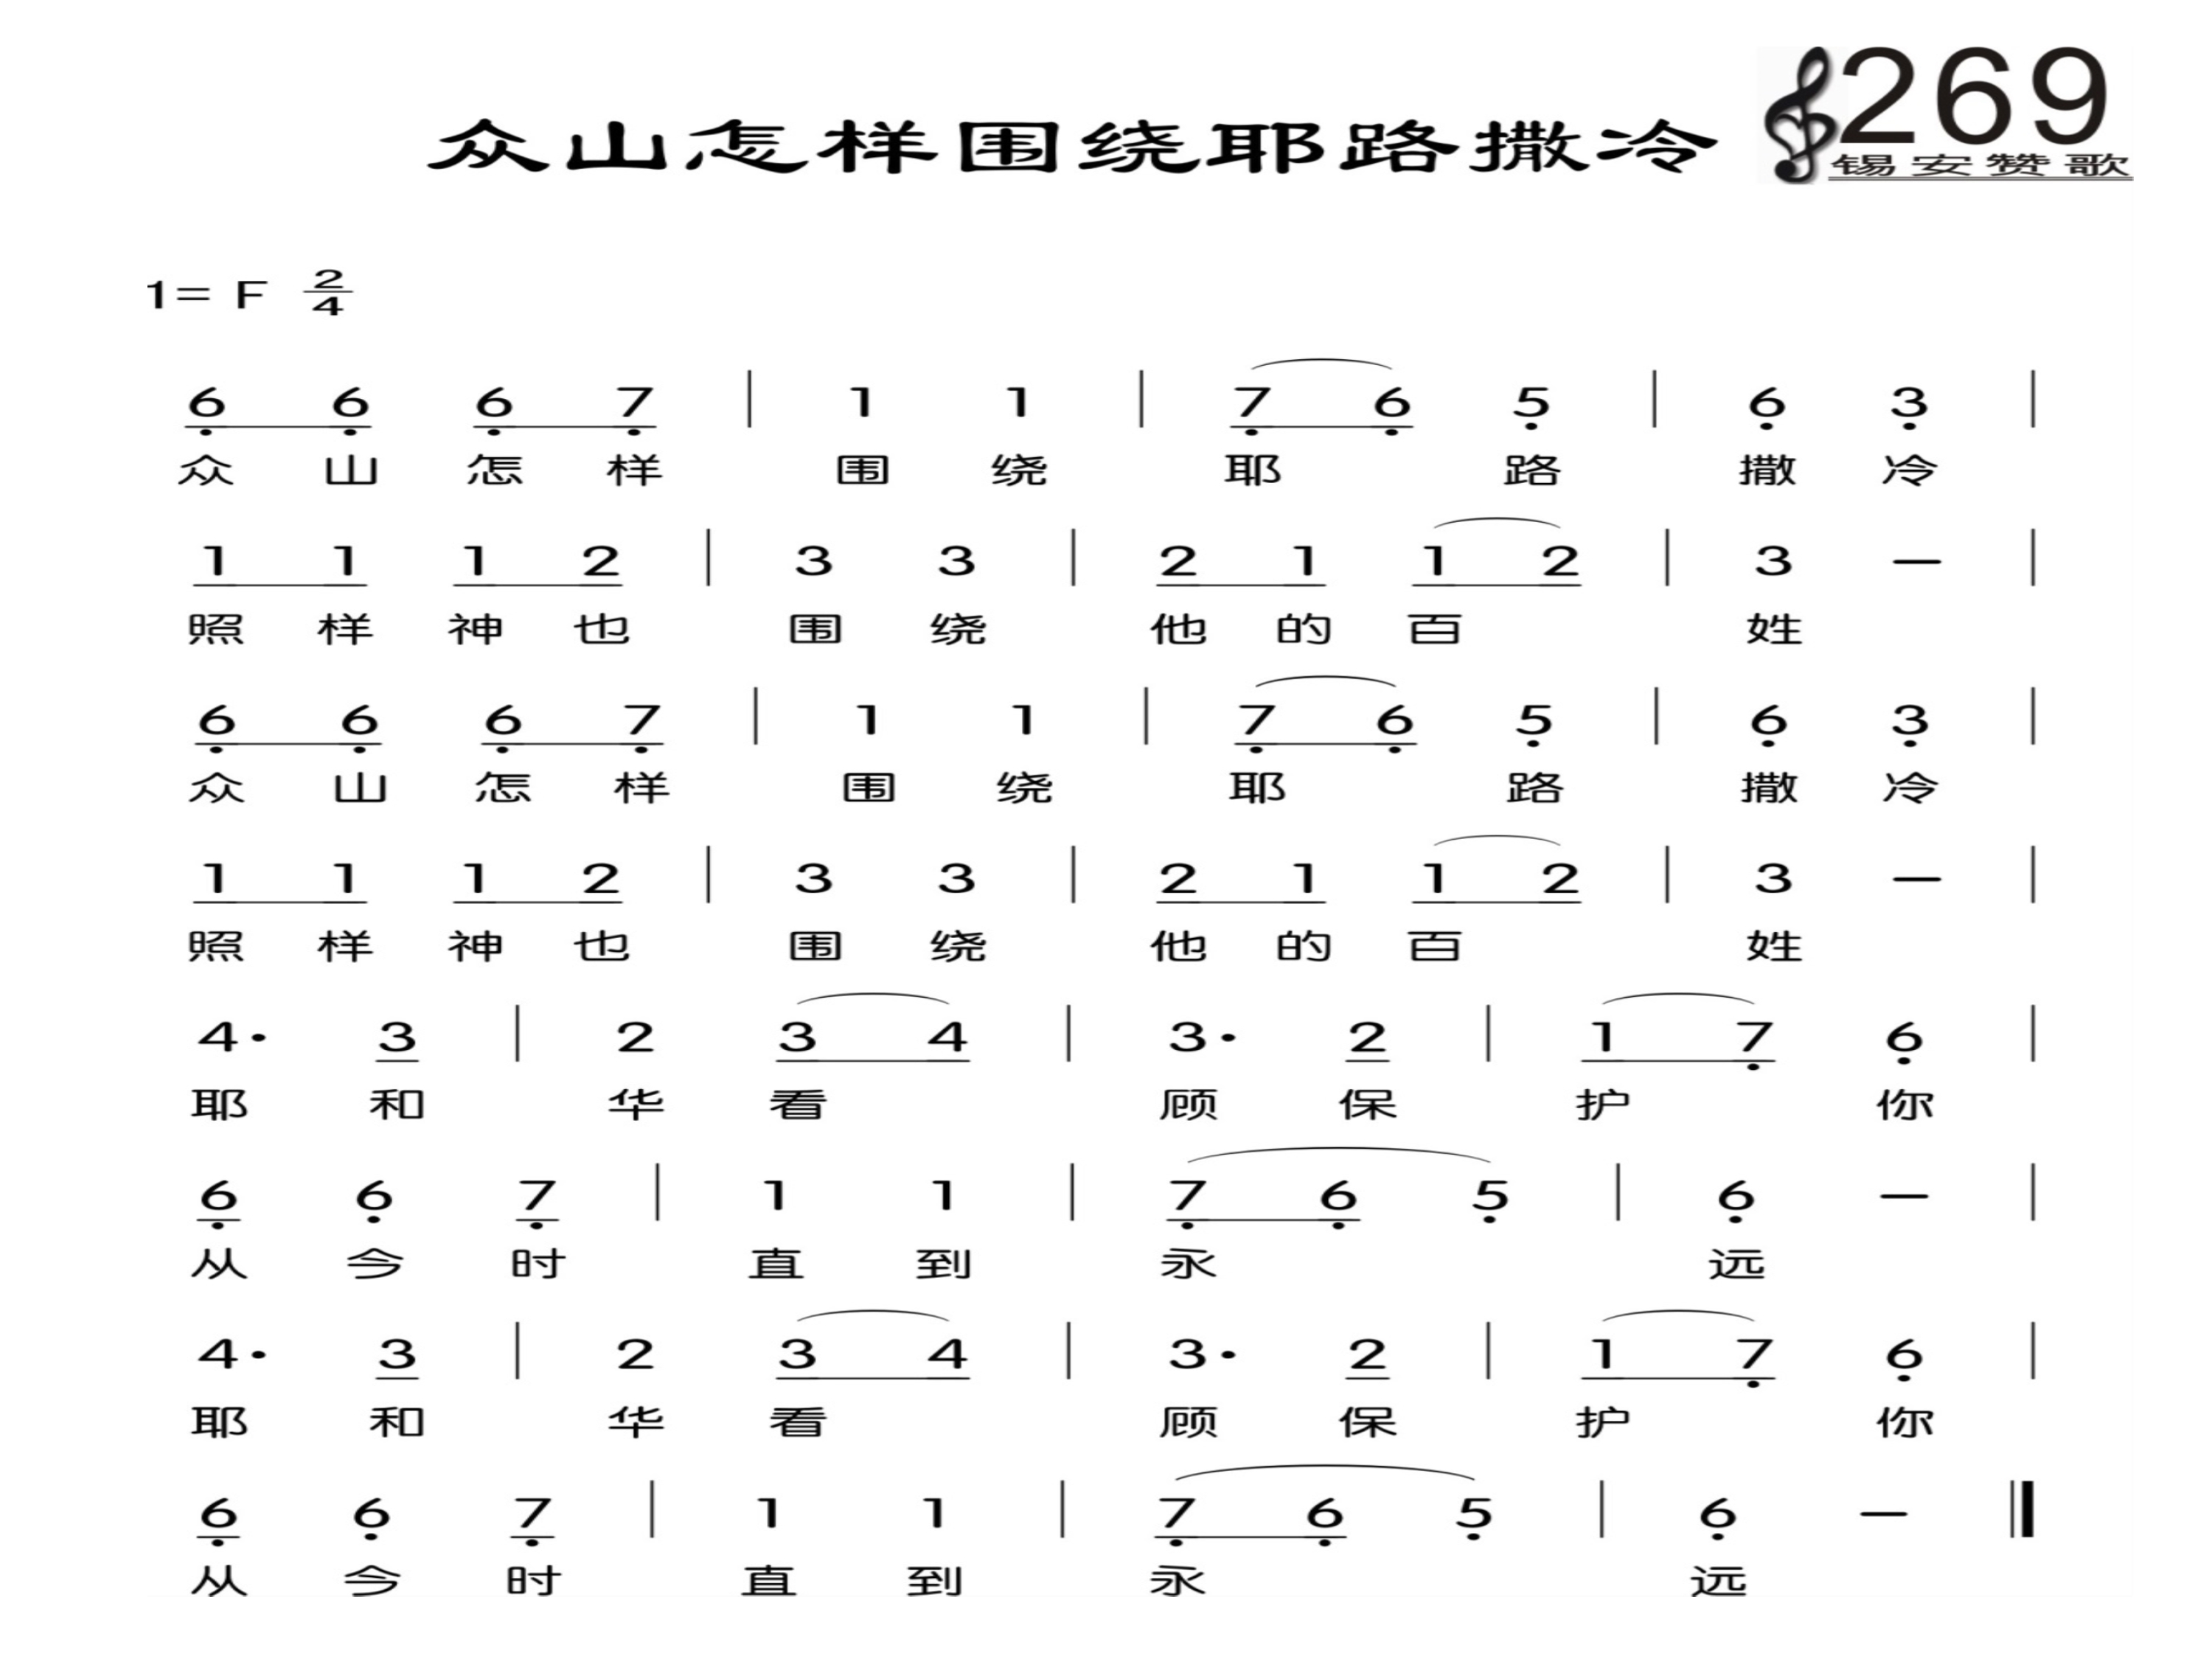 269
众山怎样围绕耶路撒冷
锡安赞歌
1= F 2/4
6 6 6 7 | 1 1 | 7 6 5 | 6 3 |
众 山 怎 样 围 绕 耶 路 撒 冷
1 1 1 2 | 3 3 | 2 1 1 2 | 3 — |
照 样 神 也 围 绕 他 的 百 姓
6 6 6 7 | 1 1 | 7 6 5 | 6 3 |
众 山 怎 样 围 绕 耶 路 撒 冷
1 1 1 2 | 3 3 | 2 1 1 2 | 3 — |
照 样 神 也 围 绕 他 的 百 姓
4· 3 | 2 3 4 | 3· 2 | 1 7 6 |
耶 和 华 看 顾 保 护 你
6 6 7 | 1 1 | 7 6 5 | 6 — |
从 今 时 直 到 永 远
4· 3 | 2 3 4 | 3· 2 | 1 7 6 |
耶 和 华 看 顾 保 护 你
6 6 7 | 1 1 | 7 6 5 | 6 — ‖
从 今 时 直 到 永 远